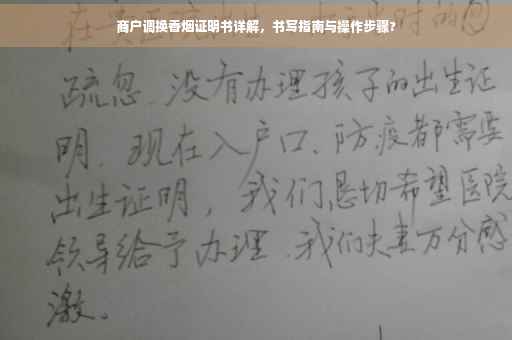 商户调换香烟证明书详解，书写指南与操作步骤?
疏忽、没有办理孩子的出生证
明、现在入户口、防疫都需要
出生证明，我们恳切希望医院
领导给予办理、我们夫妻万分感
激。